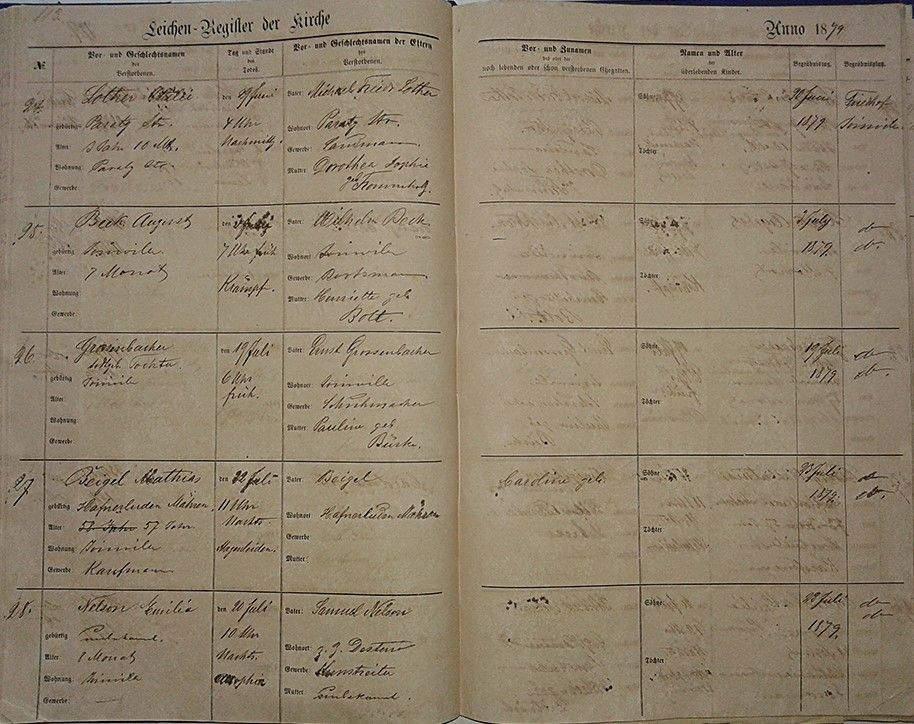 113.
Leichen-Register der Kirche
Anno 1879
№
Vor- und Geschlechtsnamen
der
Verstorbenen.
Tag und Stunde
des
Todes.
Vor- und Geschlechtsnamen der Eltern
der
Verstorbenen.
Vor- und Zunamen
des oder der
noch lebenden oder schon verstorbenen Ehegatten.
Namen und Alter
der
überlebenden Kinder.
Begräbnißtag.
Begräbnißplatz.
94.
Lother
den 29 Juni
Vater: Michael Friedr Lother
Söhne:
Juni
Friedhof
gebürtig Paraty Str.
4 Uhr
Wohnort: Paraty Str.
1879
Joinville
Alter: 3 Jahr 10 Mt.
Nachmittg.
Gewerbe: Landmann
Wohnung: Paraty Str.
Mutter: Dorothea Sophie
Töchter
Gewerbe:
geb
95.
Beck August
den
Vater: Wilhelm Beck
Söhne
July
do
gebürtig Joinville
7 Uhr früh
Wohnort Joinville
1879
do.
Alter: 7 Monat
Krämpf.
Gewerbe: Bootsmann
Töchter
Wohnung
Mutter: Henriette geb
Gewerbe:
Bolt.
96.
Grossenbacher
den 19 Juli
Vater: Ernst Grossenbacher
Söhne:
19 Juli
do
Tochter.
gebürtig Joinville
6 Uhr
Wohnort Joinville
1879
do.
Alter:
früh.
Gewerbe: Schuhmacher
Töchter
Wohnung
Mutter: Pauline geb
Gewerbe
97
Beigel Mathias
den 22 Juli
Vater: Beigel
Caroline geb
Söhne:
23 Juli
do
gebürtig Hafnerluden Mähren
11 Uhr
Wohnort: Hafnerluden Mähren
1879.
do.
Alter: 57 Jahr.
Nachts.
Gewerbe:
Töchter
Wohnung Joinville
Magenleiden.
Mutter:
Gewerbe Kaufmann
98.
Nelson Emilia
den 20 Juli
Vater: Samuel Nelson
Söhne:
22 Juli
do
gebürtig Unbekannt.
10 Uhr
Wohnort z. Z. Desterro
1879.
do.
Alter: 8 Monat
Nachts.
Gewerbe: Kunstreiter
Töchter
Wohnung: Joinville
Mutter: Unbekannt.
Gewerbe: